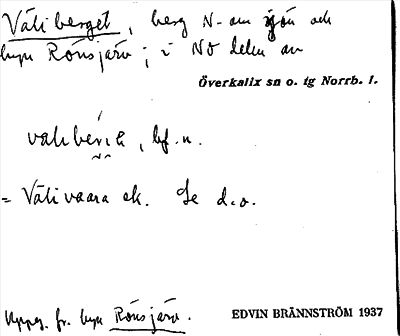 Väliberget, berg N-om sjön och
byn Rönsjärv; i NO delen av
Överkalix sn o. tg Norrb. l.
bf. n.
= Välivaara ek. Se d.o.
Uppg. fr. byn Rönsjärv.
EDVIN BRÄNNSTRÖM 1937